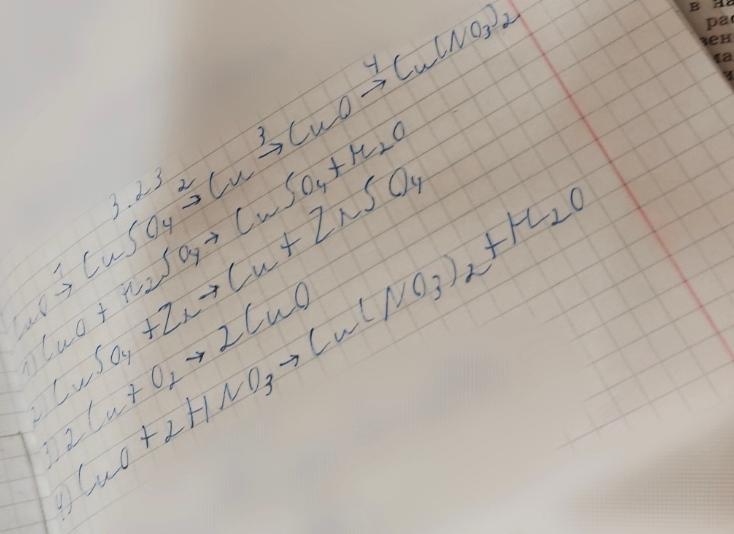 3.23
CuO →¹ CuSO₄ →² Cu →³ CuO →⁴ Cu(NO₃)₂
1) CuO + H₂SO₄ → CuSO₄ + H₂O
2) CuSO₄ + Zn → Cu + ZnSO₄
3) 2Cu + O₂ → 2CuO
4) CuO + 2HNO₃ → Cu(NO₃)₂ + H₂O